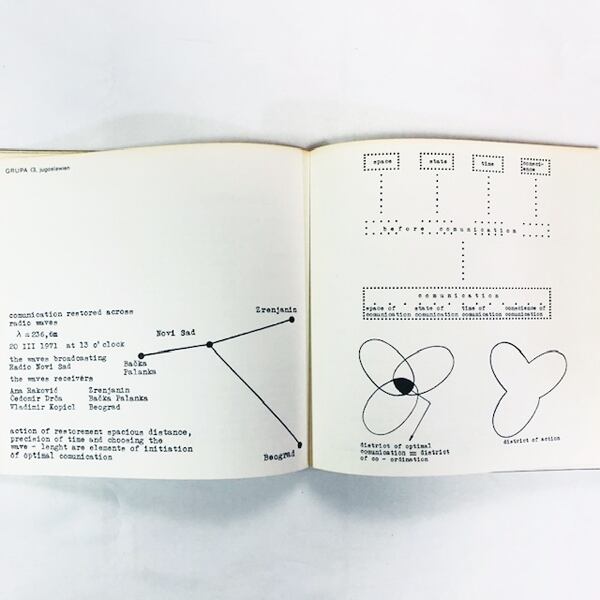 GRUPA (Э, jugoslawien
comunication restored across
radio waves
λ = 236,6m
20 III 1971 at 13 o'clock
the waves broadcasting
Radio Novi Sad
the waves receivers
Ana Raković Zrenjanin
Čedomir Drča Bačka Palanka
Vladimir Kopicl Beograd
action of restorement spacious distance,
precision of time and choosing the
wave - lenght are elements of initiation
of optimal comunication
Zrenjanin
Novi Sad
Bačka
Palanka
Beograd
space state time consci-
ence
before comunication
comunication
space of state of time of conscience of
comunication comunication comunication comunication
district of optimal
comunication == district
of co - ordination
district of action